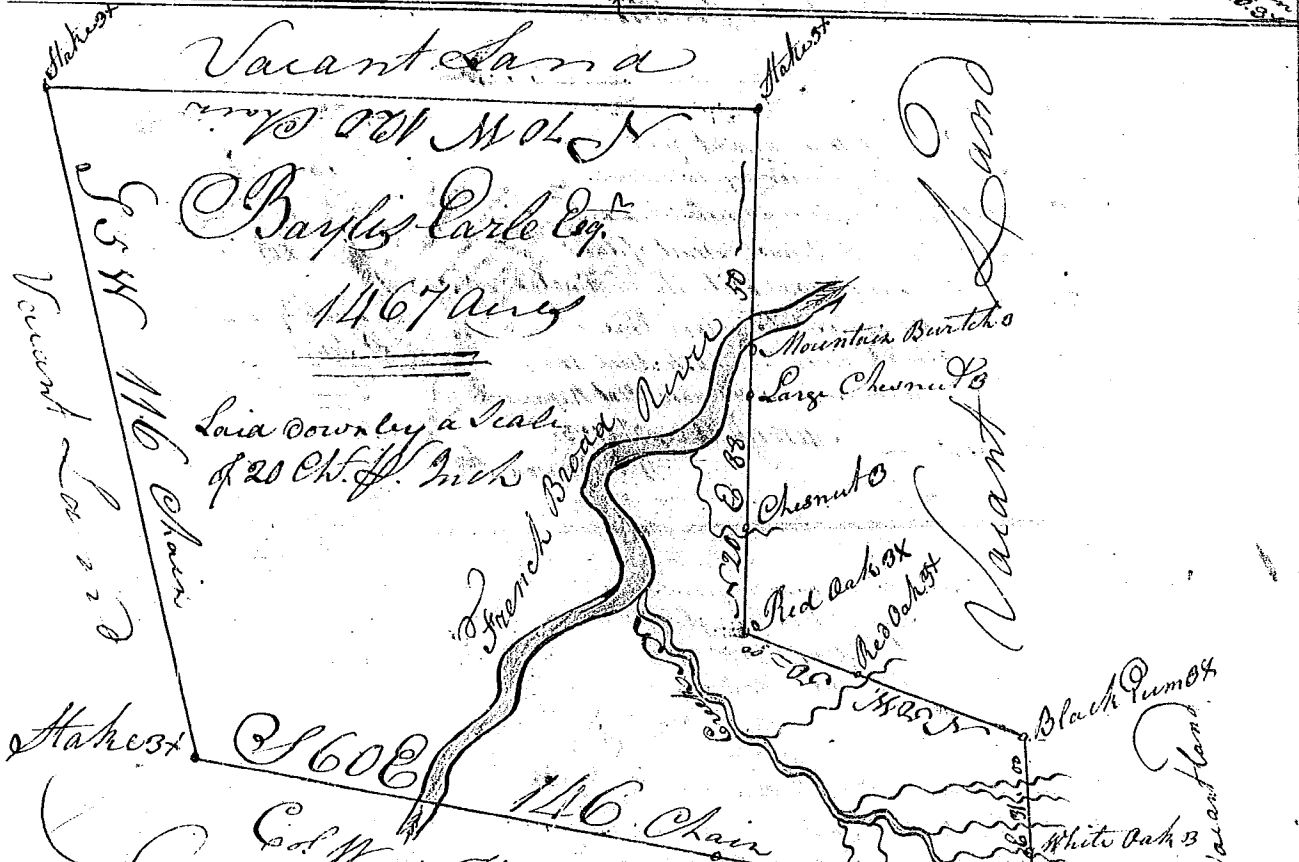 Stake 3x
Vacant Land
Stake 3x
N 70 W 120 Chain
Baylis Earle Esqr.
1467 Acres
Laid down by a Scale
of 20 Ch. pr. Inch
S 5 W
116 Chain
Vacant Land
French Broad River
50
Mountain Burtch 3
Large Chesnut 3
88
E
Chesnut 3
N 20
Red Oak 3x
Red Oak 3x
Vacant Land
50
Black Gum 3x
Vacant Land
White Oak 3
Stake 3x
S 60 E
146 Chain
Col. W